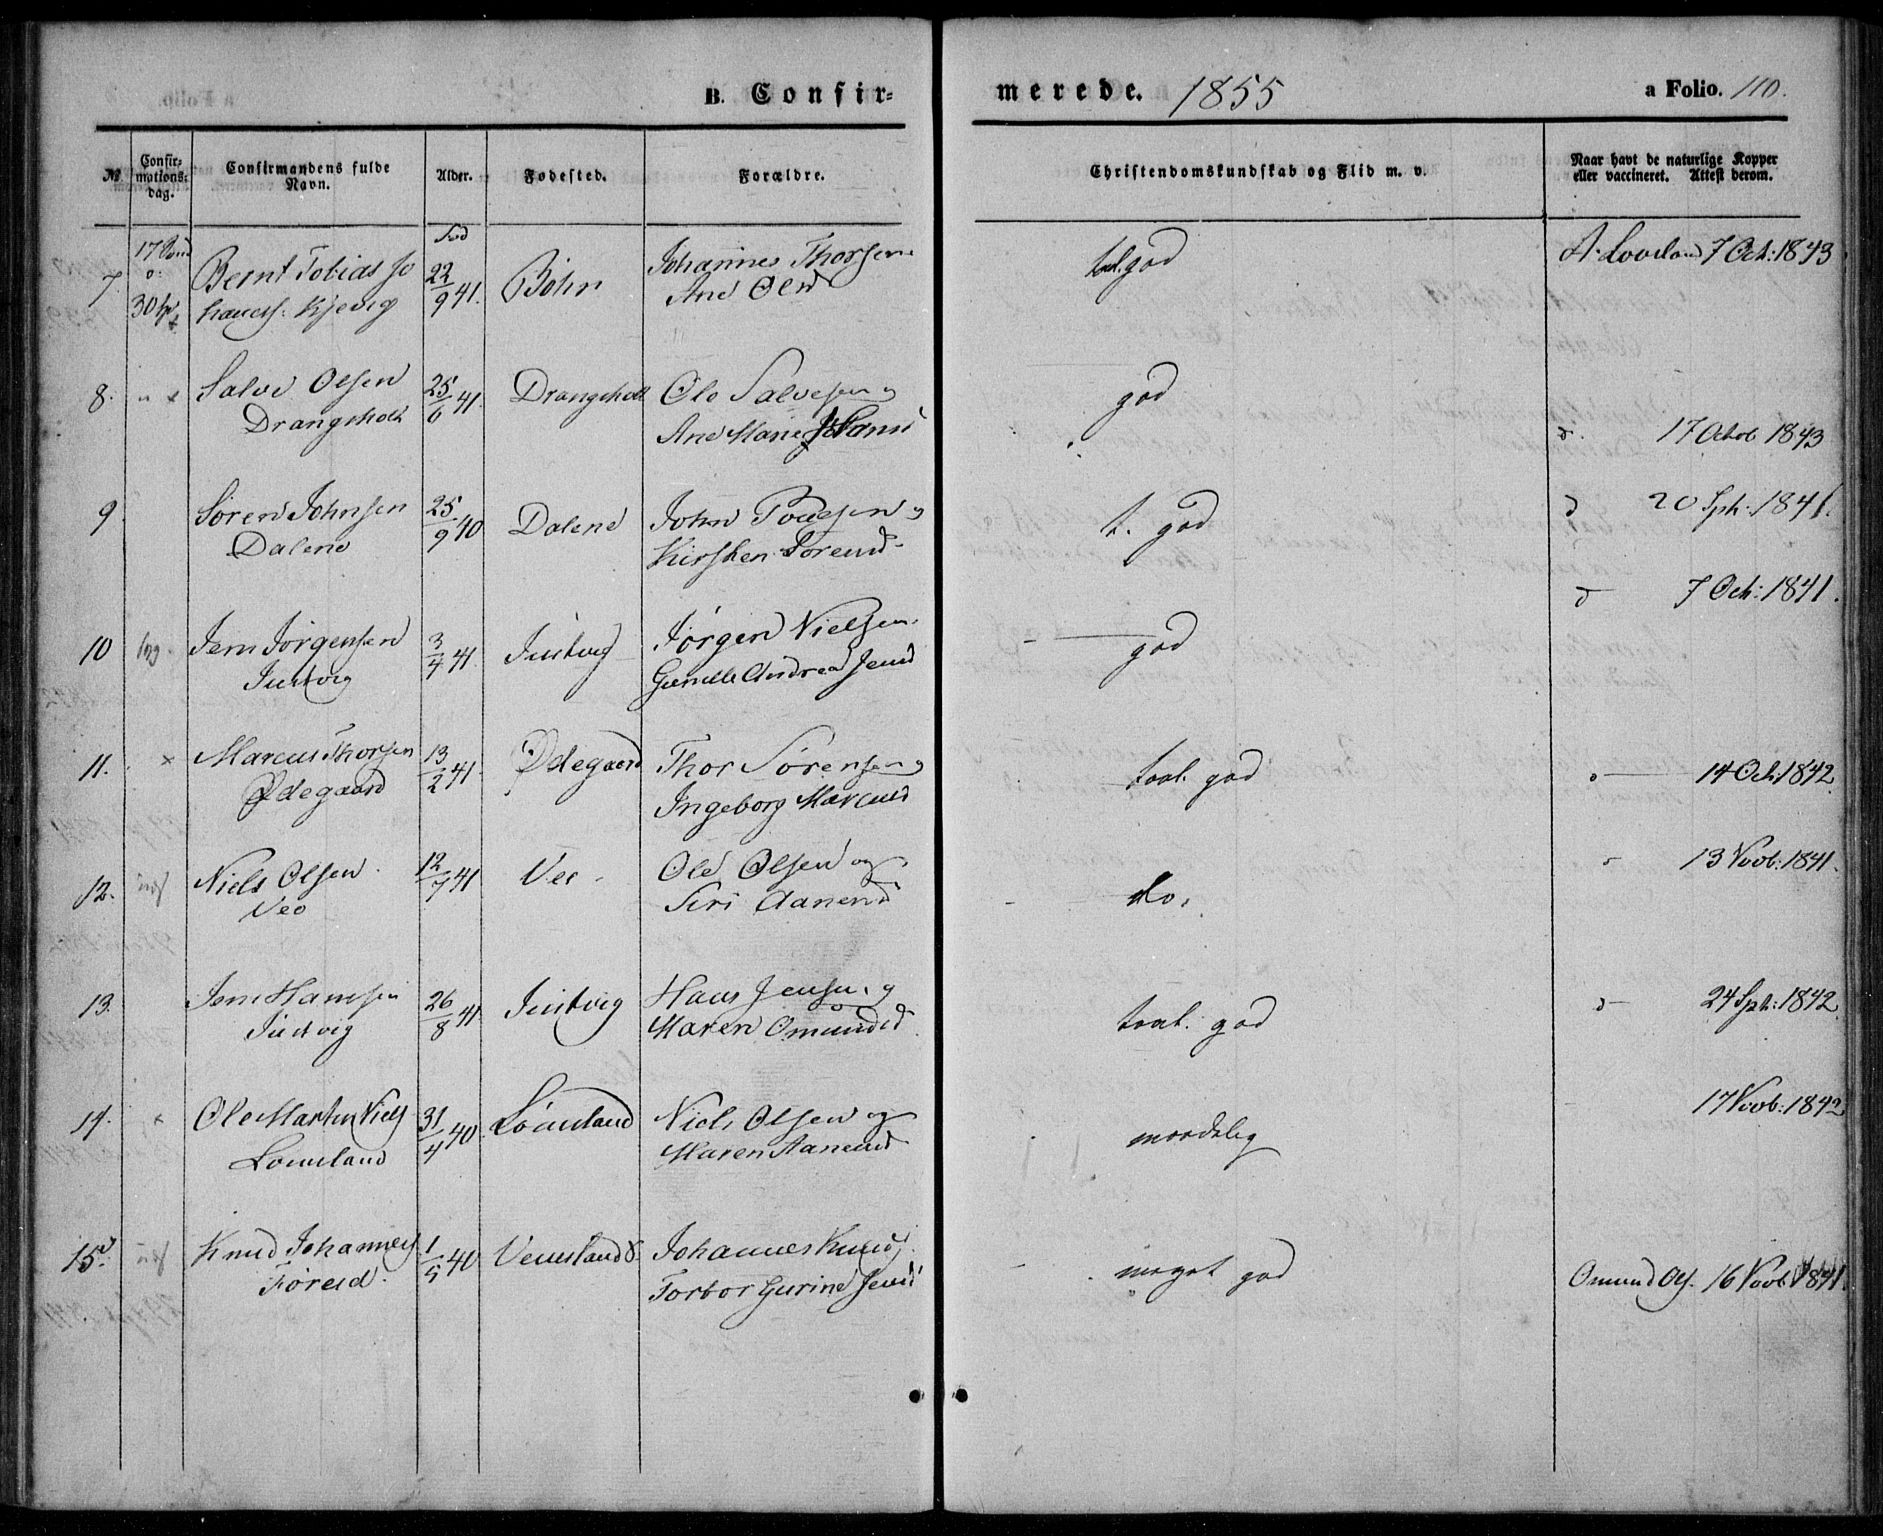 B. Confir-
merede. 1855
a Folio. 110.
№
Confir-
mations-
dag.
Confirmandens fulde
Navn.
Alder.
Fødested.
Forældre.
Christendomskundskab og Flid m. v.
Naar havt de naturlige Kopper
eller vaccineret. Attest derom.
7
17
30
Bernt Tobias Jo
hanes: Kjevig
Fød
22/9 41.
Böhn
Johannes Thorsen
Ane Olsd
tal. god
A. Loveland 7 Oct: 1843
8.
Salve Olsen
Drangsholt
25/6 41.
Drangsholt
Ole Salvesen og
Ane Marie
god
d. 17 Octob 1843
9
Søren Johnsen
Dalene
25/9 40
Dalene
John Povesen og
Kirsten Sørensd
t. god
d 20 Spt: 1841.
10
Jens Jörgensen
Justvig
3/4 41
Justvig
Jörgen Nielsen
Gunille Andrea Jensd
god
d 7 Oct: 1841.
11.
Marcus Thorsen
Ødegaard
13/2 41.
Ødegaard
Thor Sörensen og
Ingeborg Marcusd
taal. god
14 Oct: 1842
12.
Niels Olsen
Vee
12/7 41
Vee
Ole Olsen og
Siri Aanensd
do.
13 Novb: 1841.
13.
Jens Hansen
Justvig
26/8 41.
Justvig
Hans Jensen og
Maren Omundsd
taal. god
d 24 Spt: 1842
14.
Ole Martin Niels
Loveland
31/4 40
Løveland
Niels Olsen og
Maren Aanensd
maadelig
17 Novb: 1842
15
Knud Johannes
1/5 40
Johannes Knuds
Torbor Gurine Jensd
meget god
Omund Ols. 16 Novb. 1841.